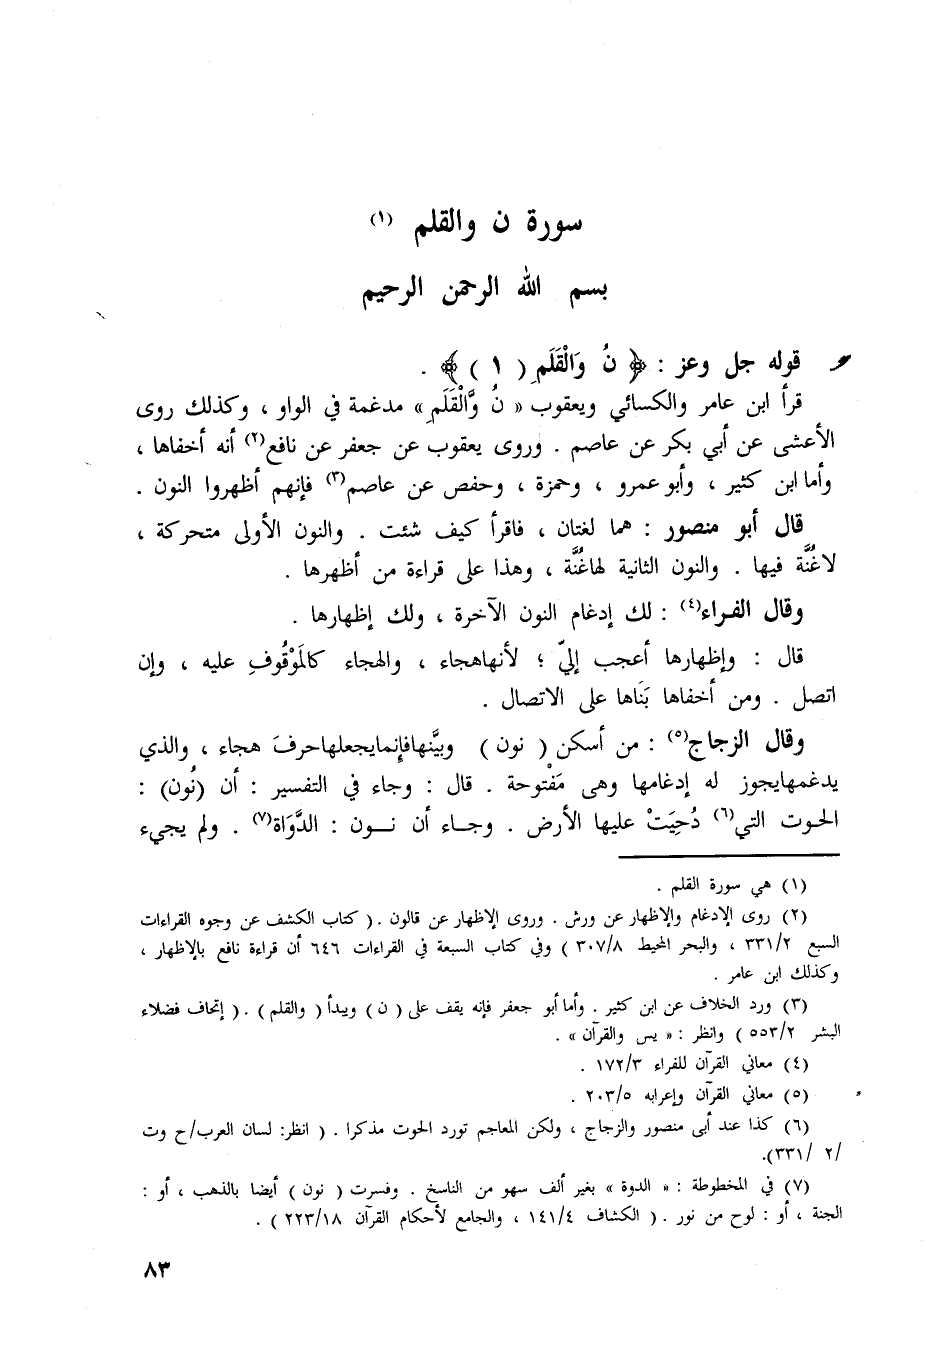 سورة ن والقلم (١)
بسم الله الرحمن الرحيم
قوله جل وعز : ﴿ نُ وَالْقَلَمِ ( ١ ) ﴾ .
قرأ ابن عامر والكسائي ويعقوب « نُ وَّالْقَلَمِ » مدغمة في الواو ، وكذلك روى
الأعشى عن أبي بكر عن عاصم . وروى يعقوب عن جعفر عن نافع(٢) أنه أخفاها ،
وأما ابن كثير ، وأبو عمرو ، وحمزة ، وحفص عن عاصم(٣) فإنهم أظهروا النون .
قال أبو منصور : هما لغتان ، فاقرأ كيف شئت . والنون الأولى متحركة ،
لاغُنَّة فيها . والنون الثانية لهاغُنَّة ، وهذا على قراءة من أظهرها .
وقال الفراء(٤) : لك إدغام النون الآخرة ، ولك إظهارها .
قال : وإظهارها أعجب إليّ ؛ لأنهاهجاء ، والهجاء كالمَوْقُوفِ عليه ، وإن
اتصل . ومن أخفاها بَنَاها على الاتصال .
وقال الزجاج(٥) : من أسكن ( نون ) وبيَّنهافإنمايجعلهاحرفَ هجاء ، والذي
يدغمهايجوز له إدغامها وهى مَفْتوحة . قال : وجاء في التفسير : أن (نُون) :
الحوت التي(٦) دُحِيَتْ عليها الأرض . وجـاء أن نــون : الدَّوَاة(٧) . ولم يجيء
(١) هي سورة القلم .
(٢) روى الإدغام والإظهار عن ورش . وروى الإظهار عن قالون . ( كتاب الكشف عن وجوه القراءات
السبع ٣٣١/٢ ، والبحر المحيط ٣٠٧/٨ ) وفي كتاب السبعة في القراءات ٦٤٦ أن قراءة نافع بالإظهار ،
وكذلك ابن عامر .
(٣) ورد الخلاف عن ابن كثير . وأما أبو جعفر فإنه يقف على ( ن ) ويبدأ ( والقلم ) . ( إتحاف فضلاء
البشر ٥٥٣/٢ ) وانظر : « يس والقرآن » .
(٤) معاني القرآن للفراء ١٧٢/٣ .
(٥) معاني القرآن وإعرابه ٢٠٣/٥ .
(٦) كذا عند أبى منصور والزجاج ، ولكن المعاجم تورد الحوت مذكرا . ( انظر: لسان العرب/ح وت
/٢ /٣٣١).
(٧) في المخطوطة : « الدوة » بغير ألف سهو من الناسخ . وفسرت ( نون ) أيضا بالذهب ، أو :
الجنة ، أو : لوح من نور . ( الكشاف ١٤١/٤ ، والجامع لأحكام القرآن ٢٢٣/١٨ ) .
٨٣